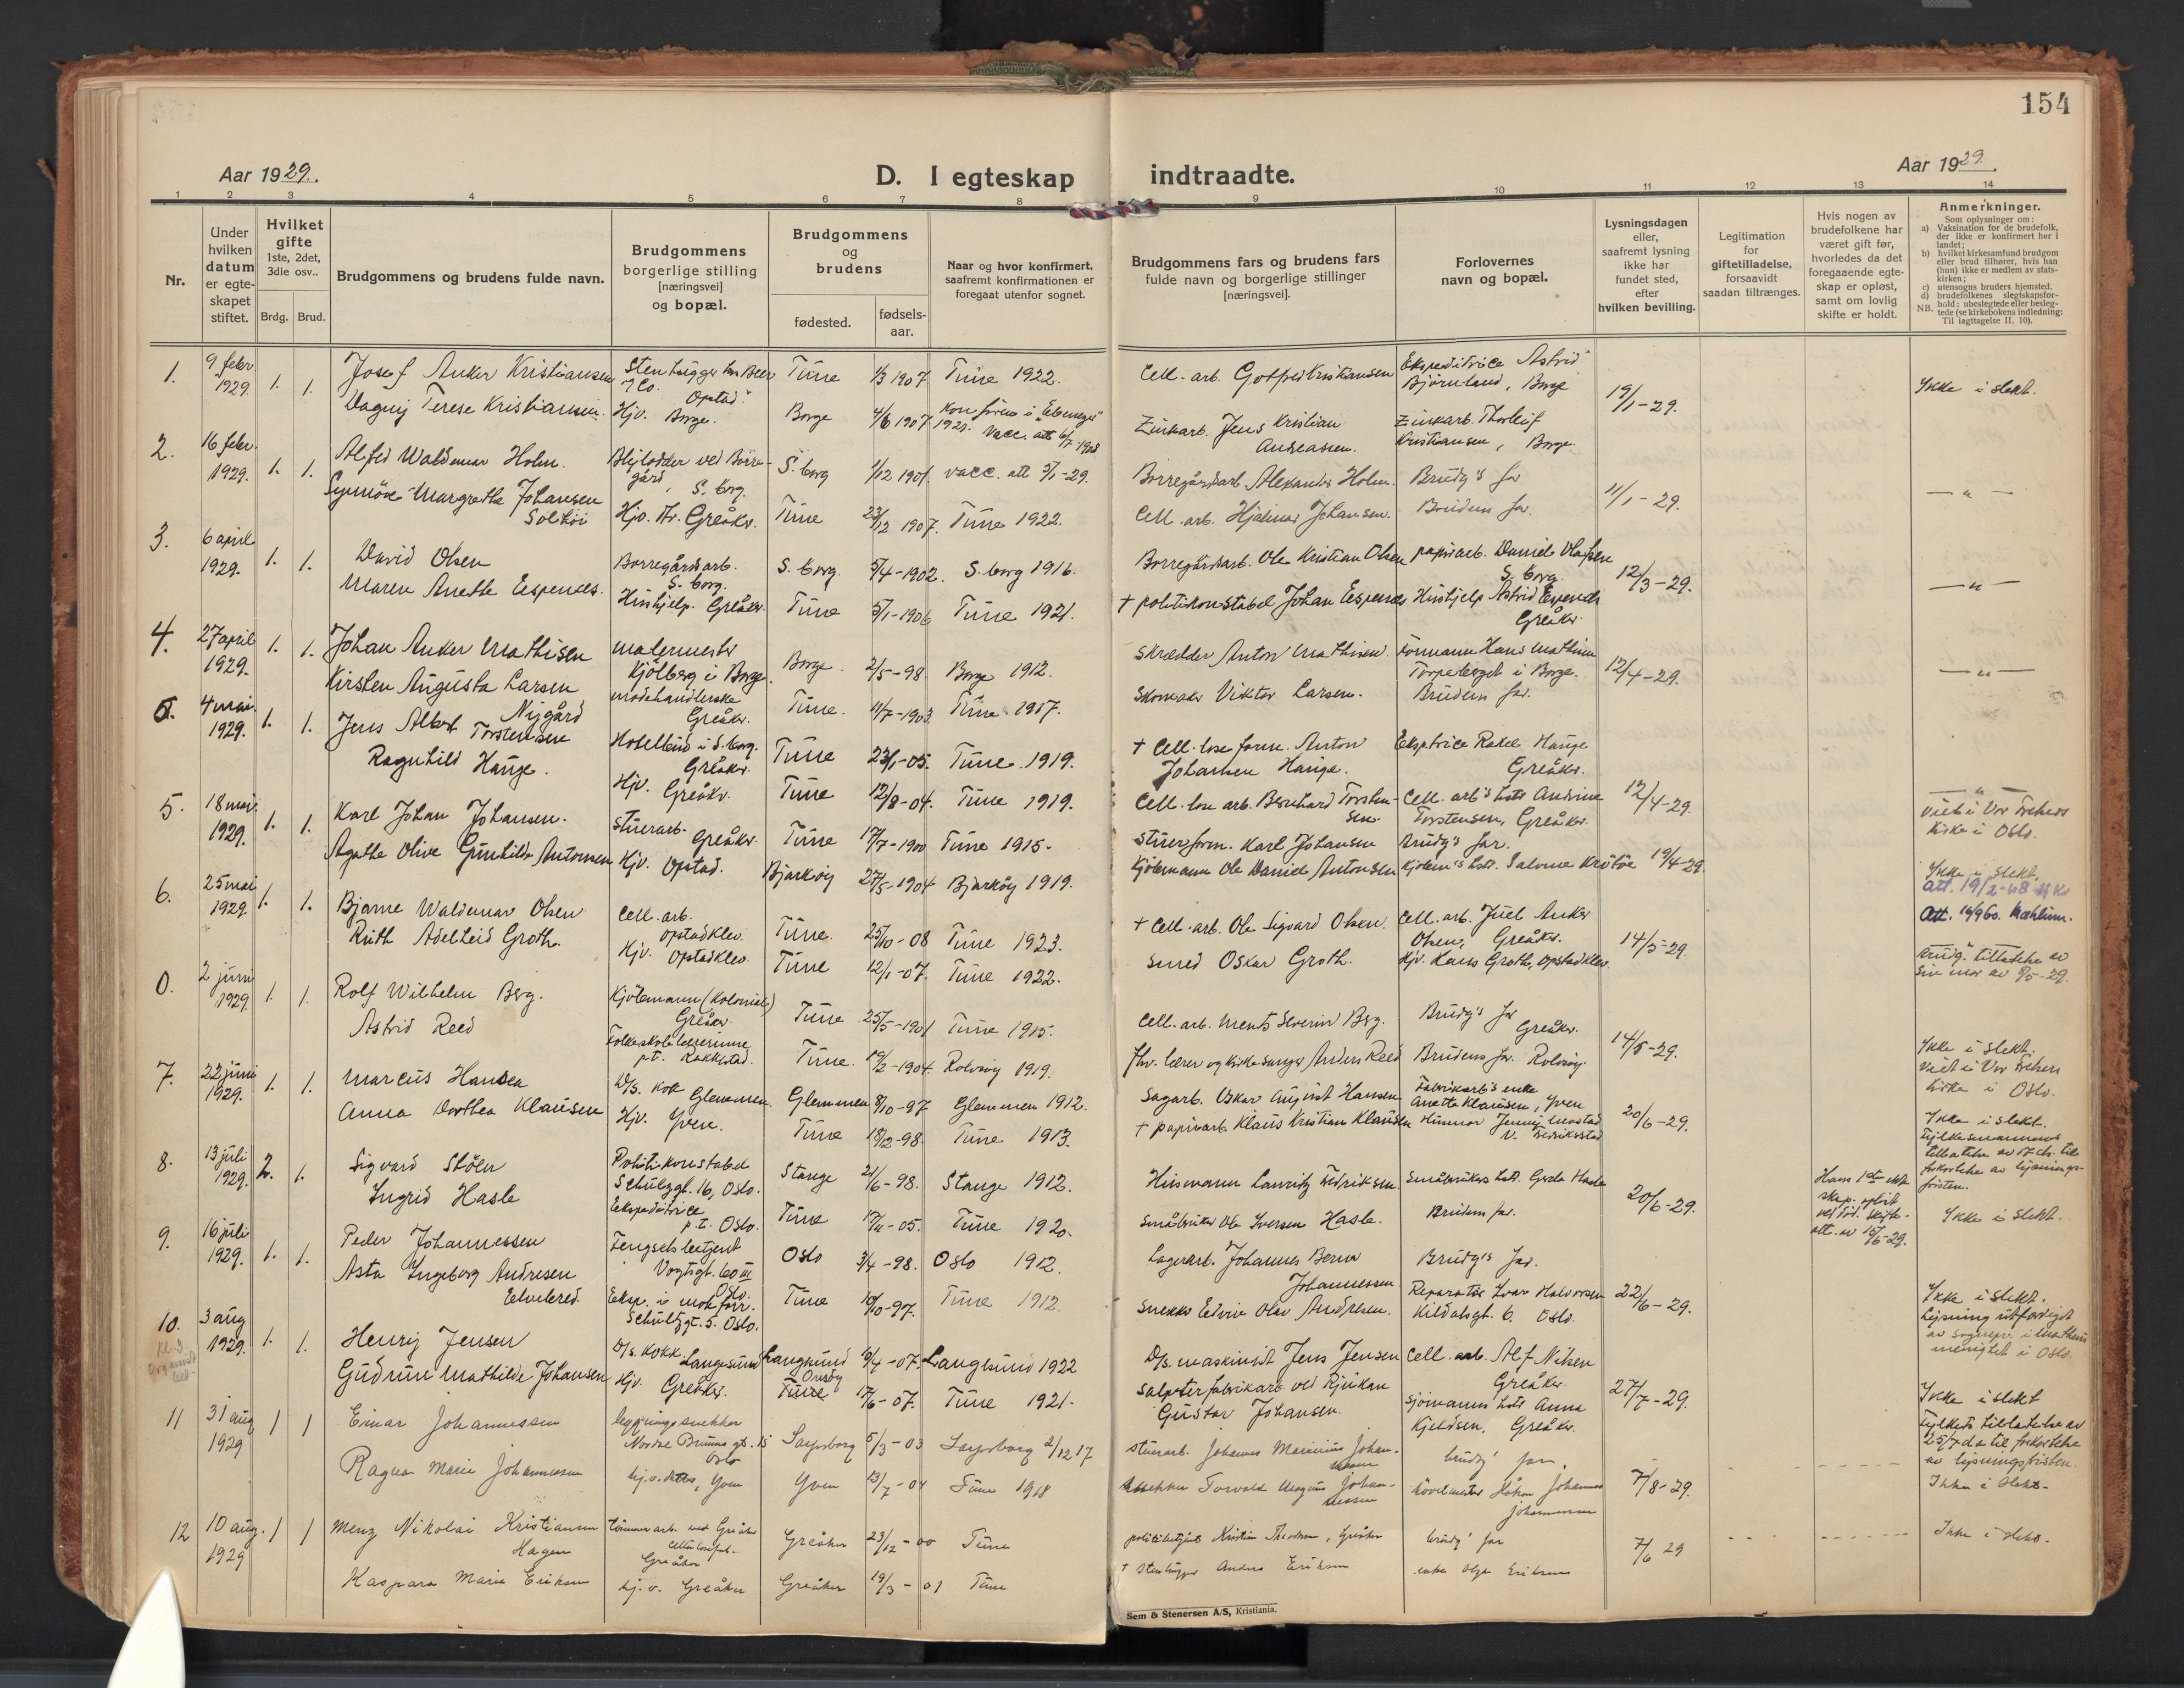 154
Aar 1929.
D. I egteskap indtraadte.
Aar 1929.
1 2 3 4 5 6 7 8 9 10 11 12 13 14
Nr.
Under hvilken datum er egteskapet stiftet.
Hvilket gifte 1ste, 2det, 3die osv..
Brdg. Brud.
Brudgommens og brudens fulde navn.
Brudgommens borgerlige stilling [næringsvei] og bopæl.
Brudgommens og brudens
fødested.
fødsels-aar.
Naar og hvor konfirmert, saafremt konfirmationen er foregaat utenfor sognet.
Brudgommens fars og brudens fars fulde navn og borgerlige stillinger [næringsvei].
Forlovernes navn og bopæl.
Lysningsdagen eller, saafremt lysning ikke har fundet sted, efter hvilken bevilling.
Legitimation for giftetilladelse, forsaavidt saadan tiltrænges.
Hvis nogen av brudefolkene har været gift før, hvorledes da det foregaaende egteskap er opløst, samt om lovlig skifte er holdt.
Anmerkninger.
Som oplysninger om:
a) Vaksination for de brudefolk, der ikke er konfirmert her i landet;
b) hvilket kirkesamfund brudgom eller brud tilhører, hvis han (hun) ikke er medlem av statskirken;
c) utensogns bruders hjemsted.
d) brudefolkenes slegtskapsforhold: ubeslegtede eller beslegtede (se kirkebokens indledning:
NB. Til iagttagelse II. 10).
1. 9 febr. 1929. 1. 1. Josef Anker Kristiansen Stenhugger Opstad. Tune 1/3 1907. Tune 1922. Cell.-arb. Gotfred Kristiansen Ekspeditrice Astrid Bjørnland, Borge 19/1-29. Ikke i slekt.
Dagny Terese Kristiansen. Hjv. Borge. Borge 4/6 1907. Zinkarb. Jens Kristian Andreassen. Zinkarb. Thorleif Kristiansen, Borge.
2. 16 febr. 1929. 1. 1. Alfred Waldemar Holm. S. borg. S. borg 1/12 1901. vacc. att 5/1-29. Borregårdarb. Alexander Holm. Brudg's far 11/1-29. — " —
Synnöve Margrethe Johansen Solhöi Hjv. Greåker. Tune 23/12 1907. Tune 1922. Cell. arb. Hjalmar Johansen. Brudens far.
3. 6 april 1929. 1. 1. David Olsen Borregårdsarb. S. borg. S. borg. 5/4-1902. S. borg 1916. Borregårdarb. Ole Kristian Olsen papirarb. Daniel Olafsen S. borg. 12/3-29. — " —
Maren Anette Espenes. Hushjelp. Greåker. Tune 5/1-1906 Tune 1921. + politikonstabel Johan Espenes Hushjelp Astrid Espenes Greåker.
4. 27 april 1929. 1. 1. Johan Anker Mathisen malermester Kjölberg i Borge. Borge. 2/5-98. Borge 1912. Skrædder Anton Mathisen. Formann Hans Mathisen Torpeberget i Borge. 12/4-29. — " —
Kirsten Augusta Larsen Nygård modehandlerske Greåker. Tune. 11/7-1903. Tune 1917. Skomaker Viktor Larsen. Brudens far.
4 mai. 1929. 1. 1. Jens Albert Torstensen Greåker. Tune 23/1-05. Tune 1919. + Cell. Anton Johansen Hauge. Rakel Hauge Greåker. 12/4-29. — " —
Ragnhild Hauge. Hjv. Greåker. Tune 12/8-04. Tune 1919. Cell. arb. Bernhard Torstensen. Cell. arb's Andrine Torstensen, Greåker. Viet i Vor Frelsers kirke i Oslo.
5. 18 mai. 1929. 1. 1. Karl Johan Johansen. Stuerarb. Greåker. Tune 17/7-1900 Tune 1915. Stuerform. Karl Johansen Brudg's far. 19/4-29. Ikke i slekt.
Agathe Olive Gunhilde Antonsen Hjv. Opstad. Bjarköy 27/5-1904 Bjarköy 1919. Kjöbmann Ole Daniel Antonsen Salome
att. 19/2-68
att. 16/9 60. Mæhlum.
6. 25 mai 1929. 1. 1. Bjarne Waldemar Olsen Cell. arb. Opstadklev. Tune. 25/10-08 Tune 1923. + Cell. arb. Ole Sigvard Olsen. Cell. arb. Juel Anker Olsen, Greåker. 14/5-29.
Ruth Adelheid Groth. Hjv. Opstadklev. Tune 12/1-07. Tune 1922. Smed Oskar Groth. Hjv. Opstadklev. Brudg. tilladelse av sin mor av 8/5-29.
0. 2 juni 1929. 1. 1. Rolf Wilhelm Berg. Kjöbmann (Kolonial) Greåker. Tune 25/5-1901 Tune 1915. Cell. arb. Ments Severin Berg. Brudg's far Greåker. 14/5-29. Ikke i slekt.
Astrid Reed Folkeskolelærerinne p.t. Rakkestad. Tune. 19/2-1904 Rolvsöy 1919. fhv. lærer og kirkesanger Anders Reed Brudens far. Rolvsöy Viet i Vor Frelsers kirke i Oslo.
7. 22 juni 1929. 1. 1. Marcus Hansen D/S. Kokk Glemmen. Glemmen 8/10-97 Glemmen 1912. Sagarb. Oskar August Hansen Fabrikarb's enke Anette Klausen, Yven 20/6-29. Ikke i slekt.
Anna Dorthea Klausen Hjv. Yven. Tune 18/12-98. Tune 1913. + papirarb. Klaus Kristian Klausen Husmor Jenny V. Fredriksstad
8. 13 juli 1929. 2. 1. Sigvard Stöen Politikonstabel Schulzgt. 16, Oslo. Stange 21/6-98. Stange 1912. Husmann Lauritz Fredriksen Småbrukers Gerda Hasle 20/6-29. Ikke i slekt.
Ingrid Hasle Ekspeditrice p.t. Oslo. Tune 17/11-05. Tune 1920. Småbruker Ole Iversen Hasle. Brudens far.
9. 16 juli 1929. 1. 1. Peder Johannessen Fengselsbetjent Vogtsgt. 60 III Oslo. Oslo 3/4-98. Oslo 1912. Lagerarb. Johannes Johannessen Brudg's far. 22/6-29. Ikke i slekt.
Asta Ingeborg Andresen Elvebred. Schulzgt. 5. Oslo. Tune 10/10-97. Tune 1912. Snekker Edvin Olav Andresen. Reparatør Ivar Halvorsen Kildalsgt. 6. Oslo.
10. 3 aug 1929. 1. 1. Henry Jensen D/S. Kokk Langesund Langesund 9/4-07. Langesund 1922 D/s. maskinist Jens Jensen Cell. arb. Alf Nilsen Greåker. 27/7-29. Ikke i slekt
Gudrun Mathilde Johansen Hjv. Greåker. Onsöy Tune 17/6-07. Tune 1921. Salpeterfabrikarb ved Rjukan Gustav Johansen. Sjömanns Anna Kjeldsen, Greåker.
11 31 aug 1929 1 1 Einar Johannessen Oslo Sarpsborg 5/3-03 Sarpsborg 2/12 17 Stuerarb. Johannes Marinius Johannessen brudg' far. 7/8-29. Ikke i slekt.
Ragna Marie Johannessen Yven Yven 13/7-04 Tune 1918 Torvald Magnus Johannessen Håkon Johannes Johannessen
12 10 aug. 1929 1 1 Menz Nikolai Kristiansen Hagen tömmerarb. ved Greåker Greåker Greåker 23/12-00 Tune politibetjent Kristian Theodorsen, Greåker brudg' far 7/6 29 Ikke i slekt.
Kaspara Marie Eriksen hj. v. Greåker Greåker 19/3-01 Tune + stenhugger Anders Eriksen enke Olga Eriksen
Sem & Stenersen A/S, Kristiania.